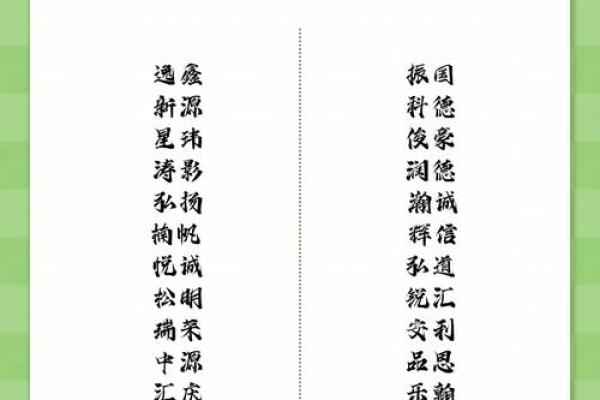 逸鑫
新源
星玮
涛影
弘扬
楠帆
悦诚
松明
瑞荣
中源
汇庆
振国
科德
俊豪
润德
瀚诚
辉信
弘道
锐汇
安利
品思
乐翰